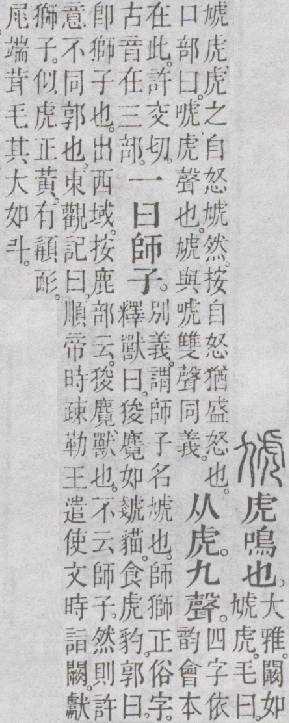 虓 虎鳴也。大雅。闞如
虓虎。毛曰。
虓虎、虎之自怒虓然。按自怒猶盛怒也。
口部曰。唬、虎聲也。虓與唬雙聲同義。
从虎。九聲。四字依
韵會本
在此。許交切。
古音在三部。
一曰師子。別義。謂師子名虓也。師獅正俗字。
釋獸曰。狻麑如虦貓。食虎豹。郭曰。
卽獅子也。出西域。按鹿部云。狻麑、獸也。不云師子。然則許
意不同郭也。東觀記曰。順帝時疎勒王遣使文時詣闕。獻
獅子。似虎正黃。有髥耏。
尾端茸毛其大如斗。